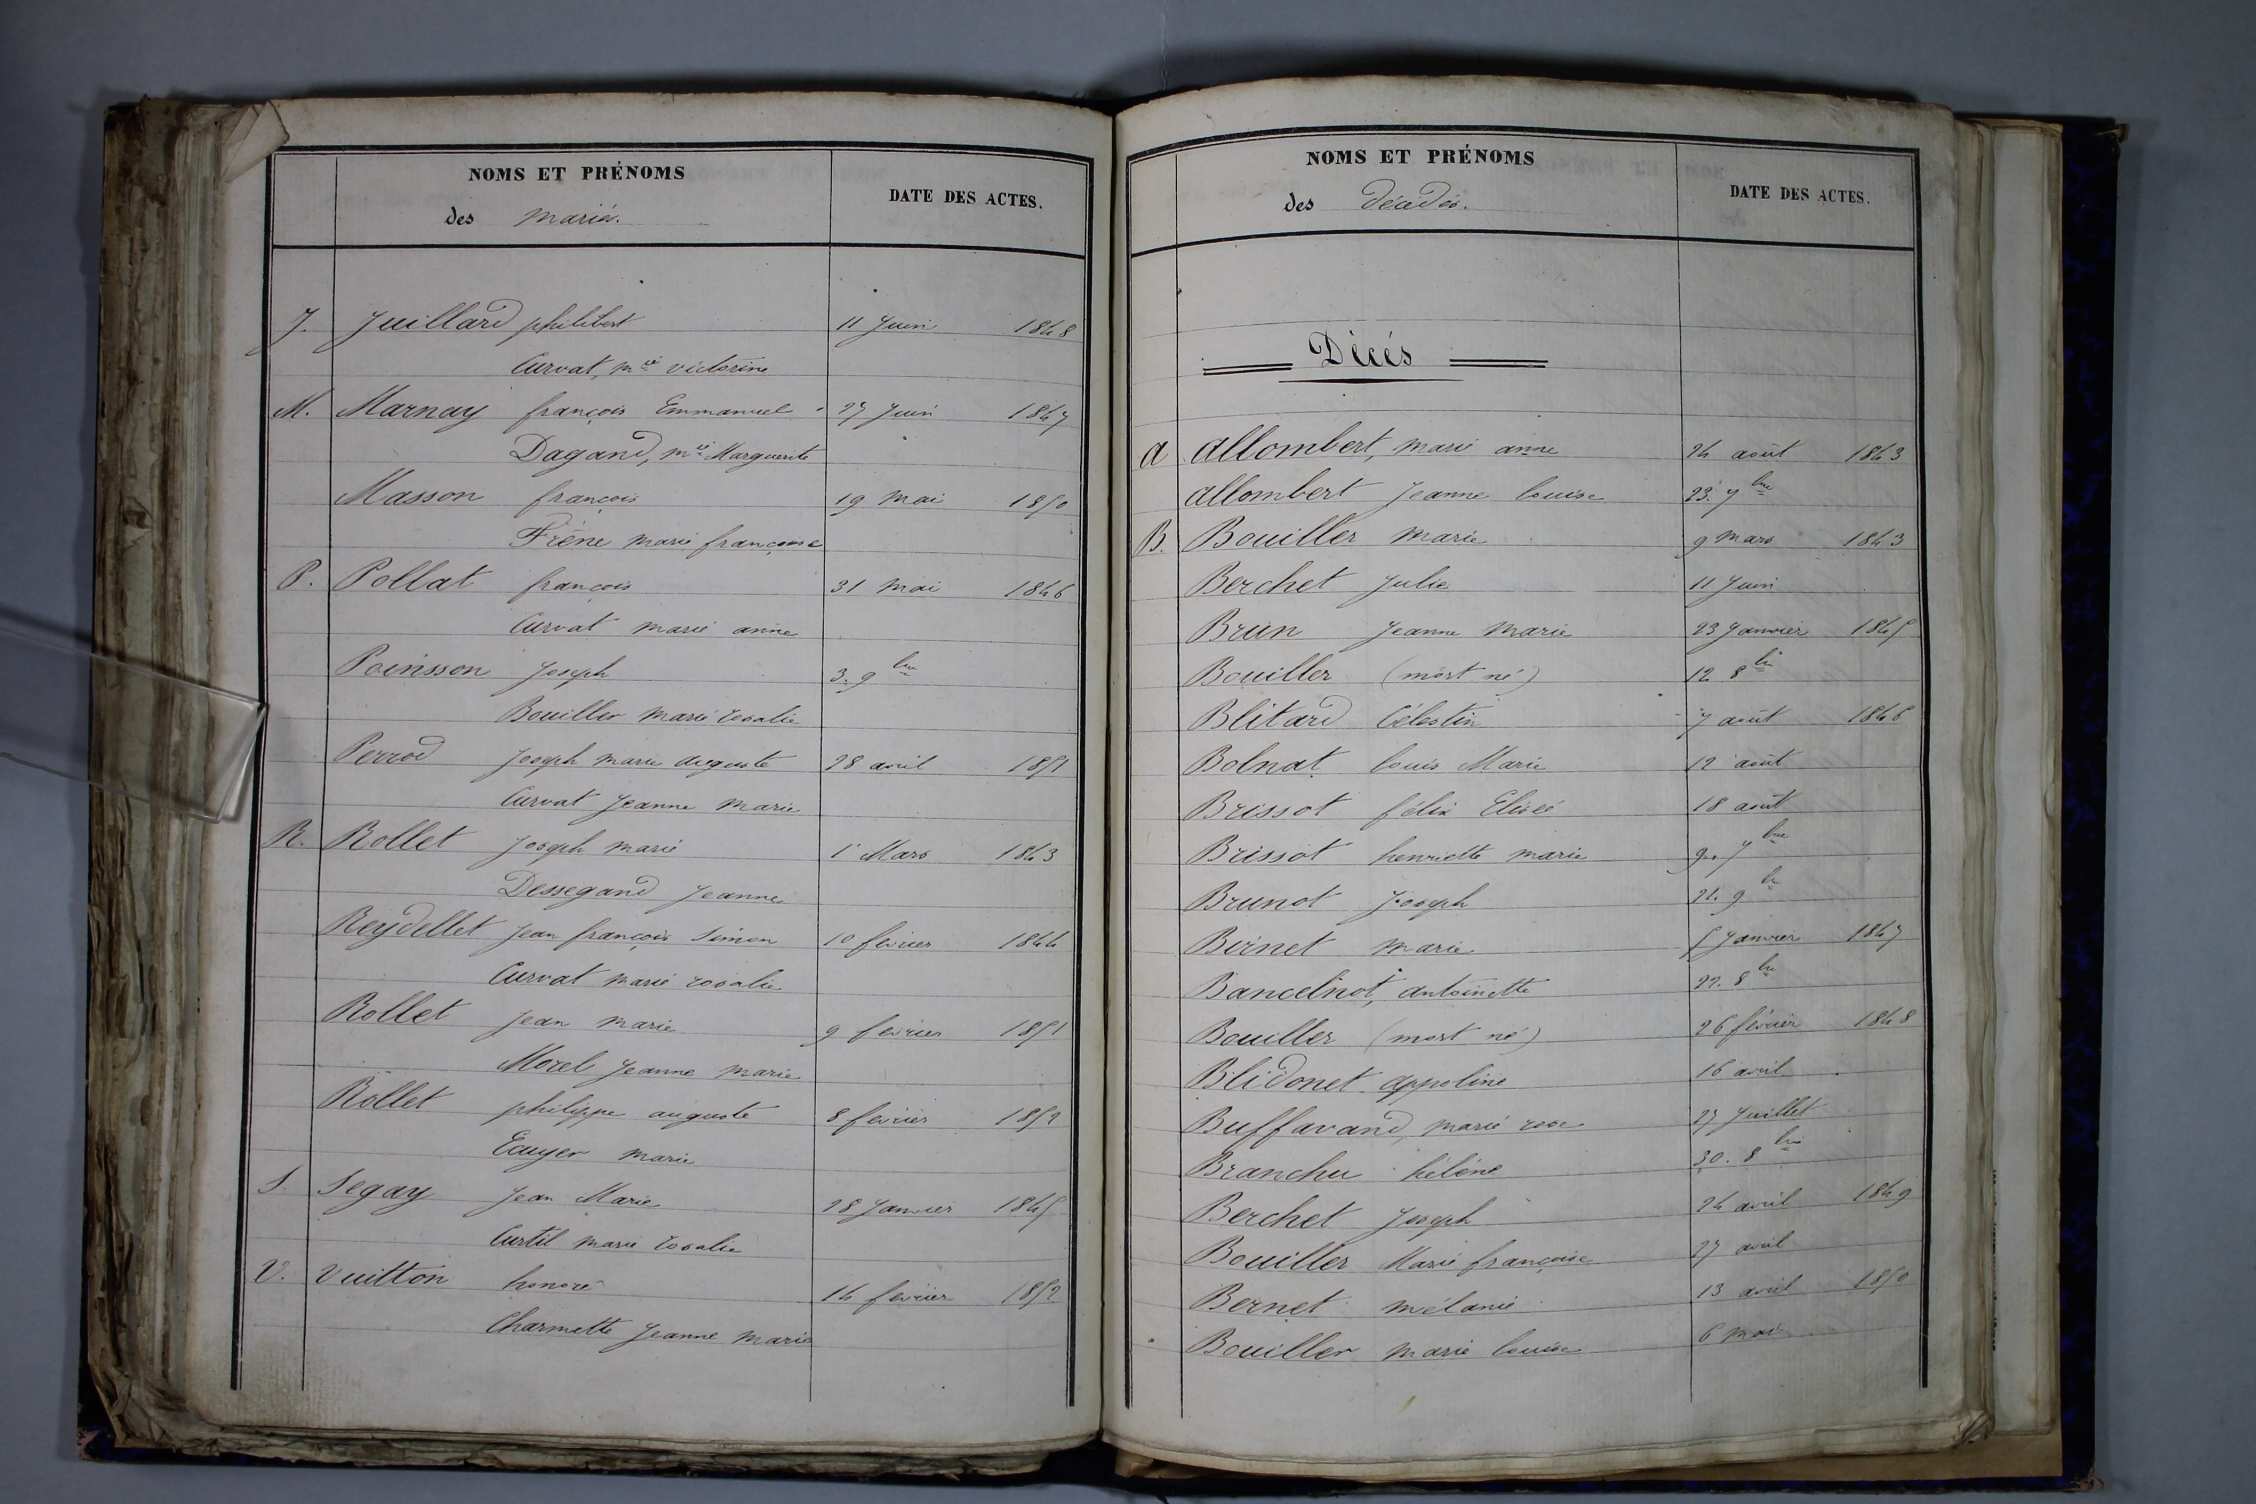 NOMS ET PRÉNOMS
des mariés.
DATE DES ACTES.
J. Juillard philibert 11 Juin 1848
Curvat, mie victorine
M. Marnay françois Emmanuel 27 Juin 1847
Dagand, mie Marguerite
Masson françois 19 mai 1850
Frêne marie françoise
P. Pollat françois 31 mai 1846
Curvat marie anne
Poinsson Joseph 3. 9bre
Bouiller marie rosalie
Perrod Joseph marie auguste 28 avril 1851
Curvat Jeanne marie
R. Rollet Joseph marie 1er Mars 1843
Dessegand Jeanne
Reydellet Jean françois Simon 10 février 1844
Curvat marie rosalie
Rollet Jean marie 9 février 1851
Morel Jeanne marie
Rollet philippe auguste 8 février 1852
Ecuyer marie
S. Segay Jean Marie 28 Janvier 1845
Curtil marie rosalie
V. Vuitton honoré 14 février 1852
Charmette Jeanne marie
NOMS ET PRÉNOMS
des décédés.
DATE DES ACTES.
Décés
A Allombert, marie anne 24 août 1843
Allombert Jeanne louise 23. 7bre
B. Bouiller marie 9 mars 1843
Berchet Julie 11 Juin
Brun Jeanne marie 23 Janvier 1845
Bouiller (mort né) 12 8bre
Blitard Célestin 7 août 1846
Bolnat louis Marie 12 août
Brissot félix Elisée 18 août
Brissot henriette marie 9. 7bre
Brunot Joseph 21. 9bre
Birnet marie 5 Janvier 1847
Bancelnot, antoinette 22. 8bre
Bouiller (mort né) 26 février 1848
Blidonet appoline 16 avril
Buffavand, marie rose 27 Juillet
Branchu hélène 30. 8bre
Berchet Joseph 24 avril 1849
Bouiller Marie françoise 27 avril
Bernet mélanie 13 avril 1850
Bouiller marie louise 6 mai